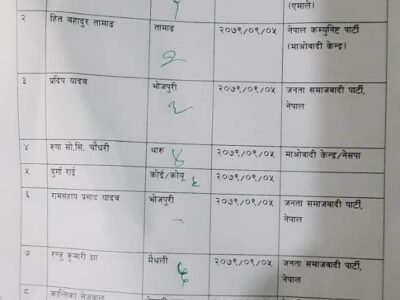 (एमाले)
२ हित बहादुर तामाङ तामाङ २०७९/०९/०५ नेपाल कम्युनिष्ट पार्टी
(माओवादी केन्द्र)
2
३ प्रदिप यादव भोजपुरी २०७९/०९/०५ जनता समाजवादी पार्टी,
नेपाल
३
४ रुपा सो.सि. चौधरी थारु २०७९/०९/०५ माओवादी केन्द्र/नेसपा
४
५ दुर्गा राई कोई/कोयू २०७९/०९/०५
६ रामसहाय प्रसाद यादव भोजपुरी २०७९/०९/०५ जनता समाजवादी पार्टी,
नेपाल
७ रन्जु कुमारी झा मैथली २०७९/०९/०५ जनता समाजवादी पार्टी,
नेपाल
८